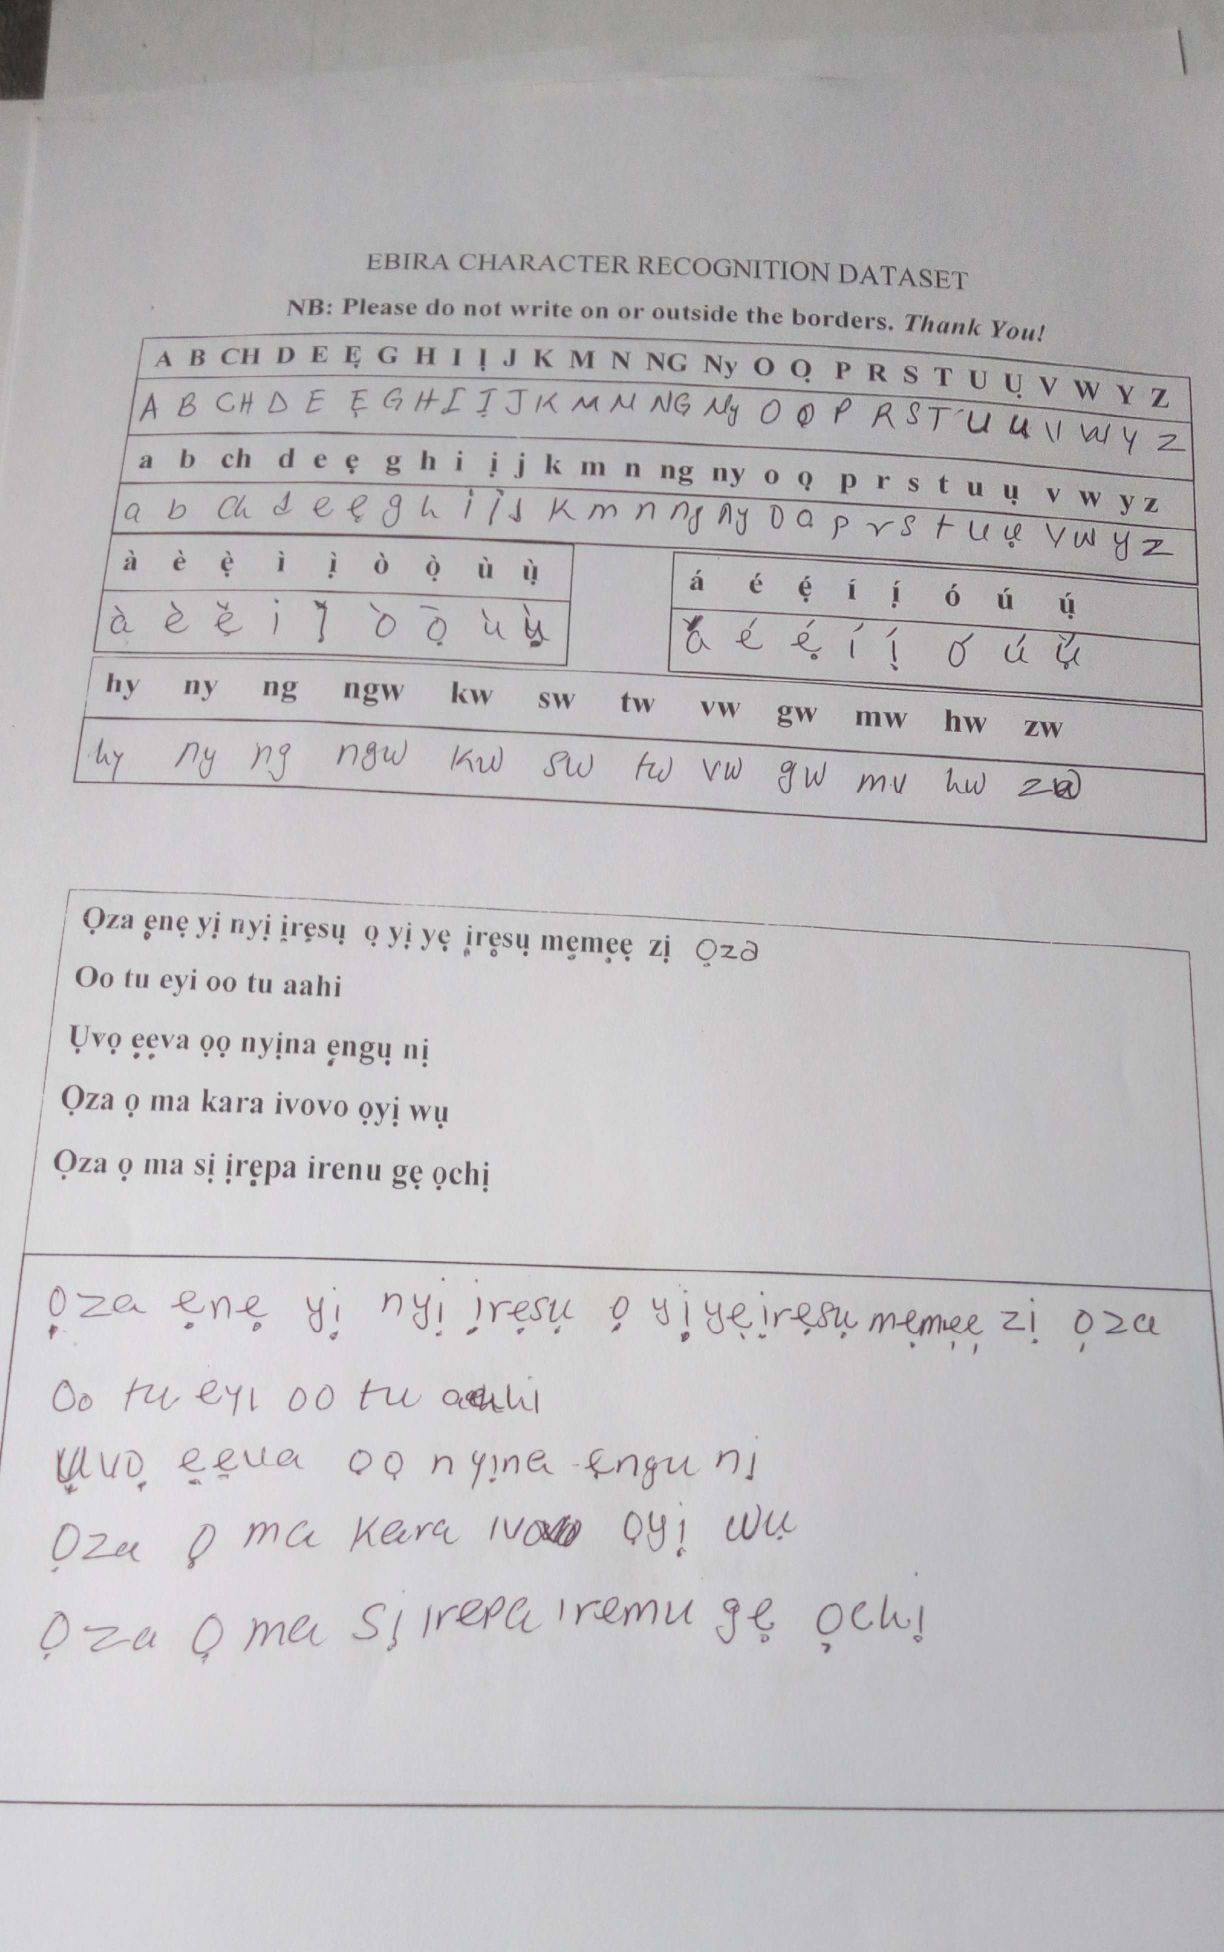 EBIRA CHARACTER RECOGNITION DATASET
NB: Please do not write on or outside the borders. Thank You!
A B CH D E Ẹ G H I Ị J K M N NG Ny O Ọ P R S T U Ụ V W Y Z
A B CH D E Ẹ G H I Ị J K M N NG Ny O Ọ P R S T U Ụ V W Y Z
a b ch d e ẹ g h i ị j k m n ng ny o ọ p r s t u ụ v w y z
a b ch d e ẹ g h i ị j k m n ng ny o ọ p r s t u ụ v w y z
à è ẹ̀ ì ị̀ ò ọ̀ ù ụ̀
à è ẹ̀ ì ị̀ ò ọ̀ ù ụ̀
á é ẹ́ í ị́ ó ú ụ́
á é ẹ́ í ị́ ó ú ụ́
hy ny ng ngw kw sw tw vw gw mw hw zw
hy ny ng ngw kw sw tw vw gw mv hw zw
Ọza ẹnẹ yị nyị ịrẹsụ ọ yị yẹ ịrẹsụ mẹmẹẹ zị Ọza
Oo tu eyi oo tu aahi
Ụvọ ẹẹva ọọ nyịna ẹngụ nị
Ọza ọ ma kara ivovo ọyị wụ
Ọza ọ ma sị ịrẹpa irenu gẹ ọchị
Ọza ẹnẹ yị nyị ịrẹsụ ọ yị yẹ ịrẹsụ mẹmẹẹ zị ọza
Oo tu eyi oo tu
Ụvọ ẹẹva ọọ nyịna ẹngu nị
Ọza ọ ma kara ọyị wụ
Ọza ọ ma sị irepa iremu gẹ ọchị